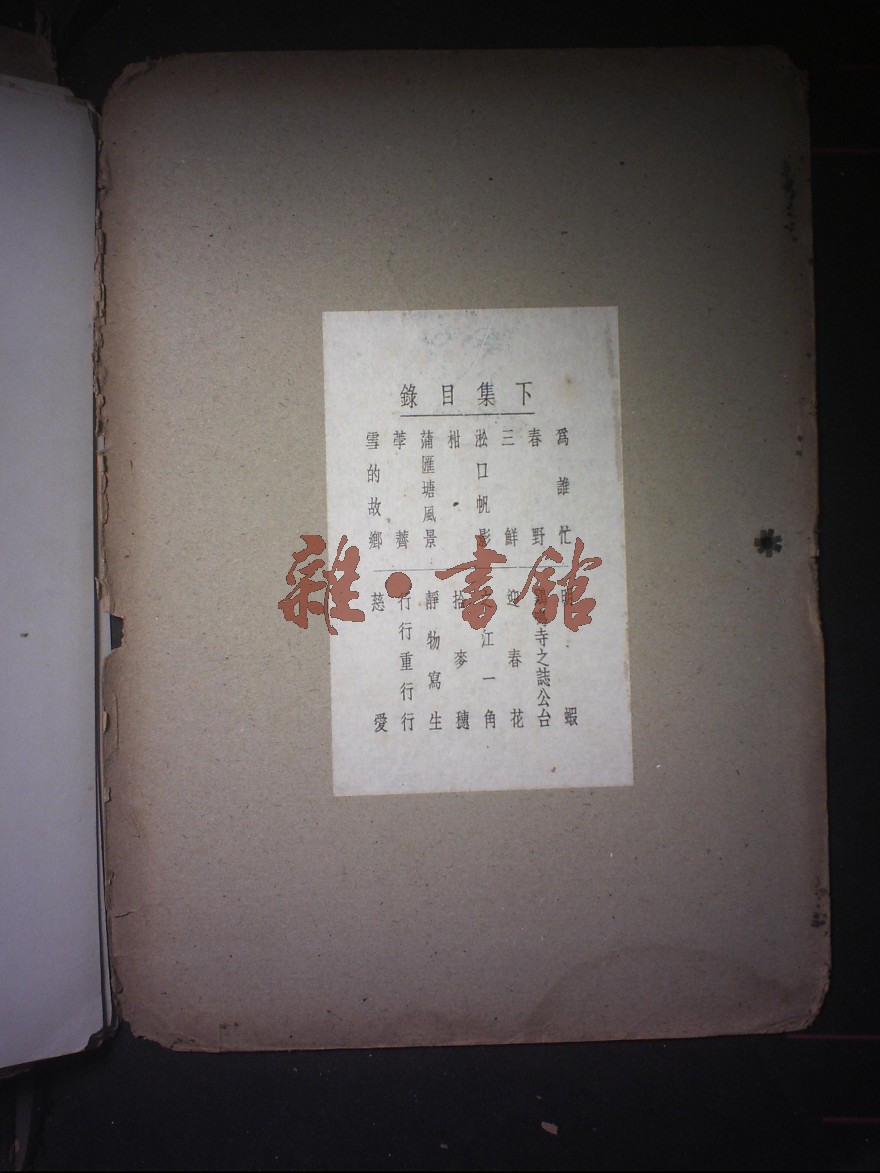 下集目錄
爲誰忙
春野
三鮮
淞口帆影
柑
蒲匯塘風景
荸薺
雪的故鄉
蝦
寺之誌公台
迎春花
江一角
拾麥穗
靜物寫生
行行重行行
慈愛
雜·書舘